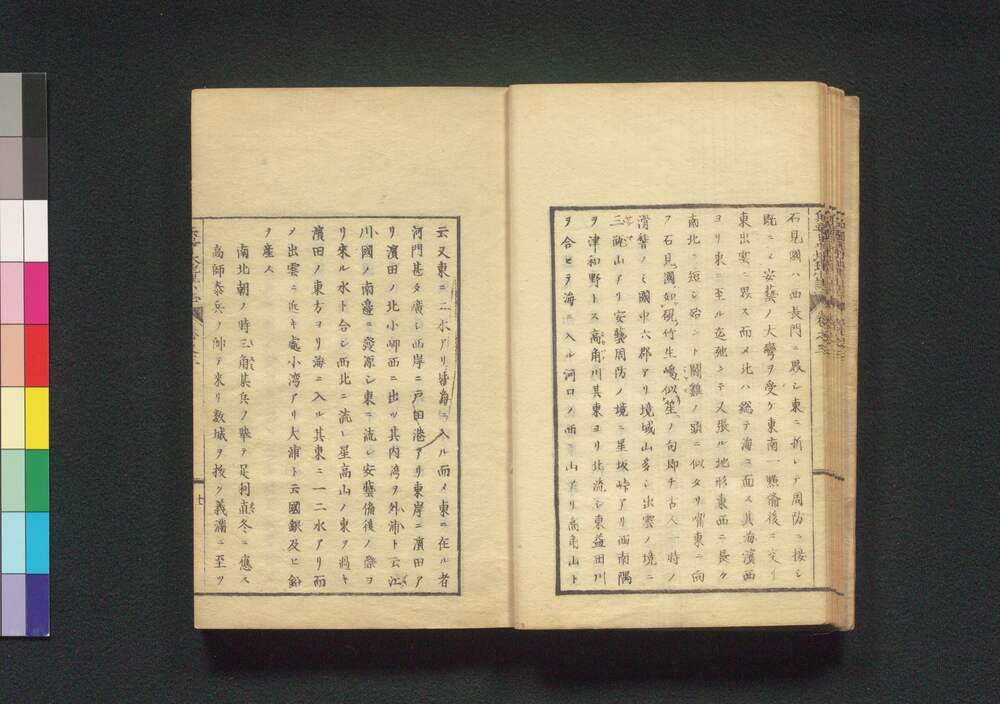 石見國ハ西長門ニ界シ東ニ折レテ周防ニ接シ
既ニメ安藝ノ大彎ヲ受ケ東南一點備後ニ交リ
東出雲ニ界ス而メ北ハ総テ海ニ面ス其海濱西
ヨリ東ニ至ル迄弛ミテ又張ル地形東西ニ長ク
南北ニ短シ殆ント鬪雞ノ頭ニ似タリ觜東ニ向
フ石見國如硯竹生嶋似笙ノ句即チ古人一時ノ
滑稽ノミ國中六郡アリ境域山多シ出雲ノ境ニ
三瓶山アリ安藝周防ノ境ニ星坂峠アリ西南隅
ヲ津和野トス高角川其東ヨリ北流シ東益田川
ヲ合セテ海ニ入ル河口ノ西ニ山アリ高角山ト
云又東ニ二水アリ皆海ニ入ル而メ東ニ在ル者
河門甚タ廣シ西岸ニ戸田港アリ東岸ニ濱田ア
リ濱田ノ北小岬西ニ出ツ其内湾ヲ外浦ト云江
川國ノ南邉ニ發源シ東ニ流レ安藝備後ノ際ヨ
リ來ル水ト合シ西北ニ流レ星高山ノ東ヲ過キ
濱田ノ東方ヨリ海ニ入ル其東ニ一二水アリ而
ノ出雲ニ近キ處小湾アリ大浦ト云國銀及ヒ鉛
ヲ産ス
南北朝ノ時三角某兵ノ
足利直冬ニ應ス
高師泰兵ノ帥テ來リ数城ヲ抜ク義滿ニ至ツ
七